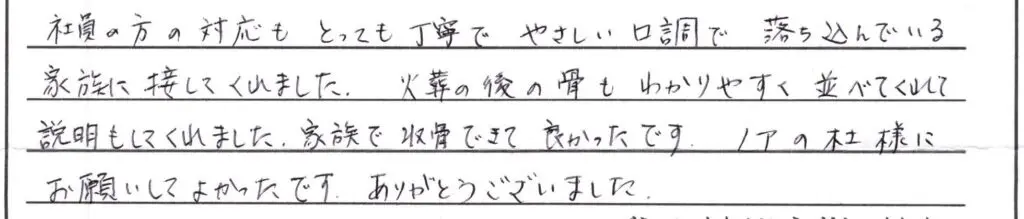 社員の方の対応も とっても丁寧で やさしい口調で 落ち込んでいる
家族に接してくれました. 火葬の後の骨も わかりやすく 並べてくれて
説明もしてくれました. 家族で収骨できて 良かったです. ノアの杜様に
お願いしてよかったです. ありがとうございました.